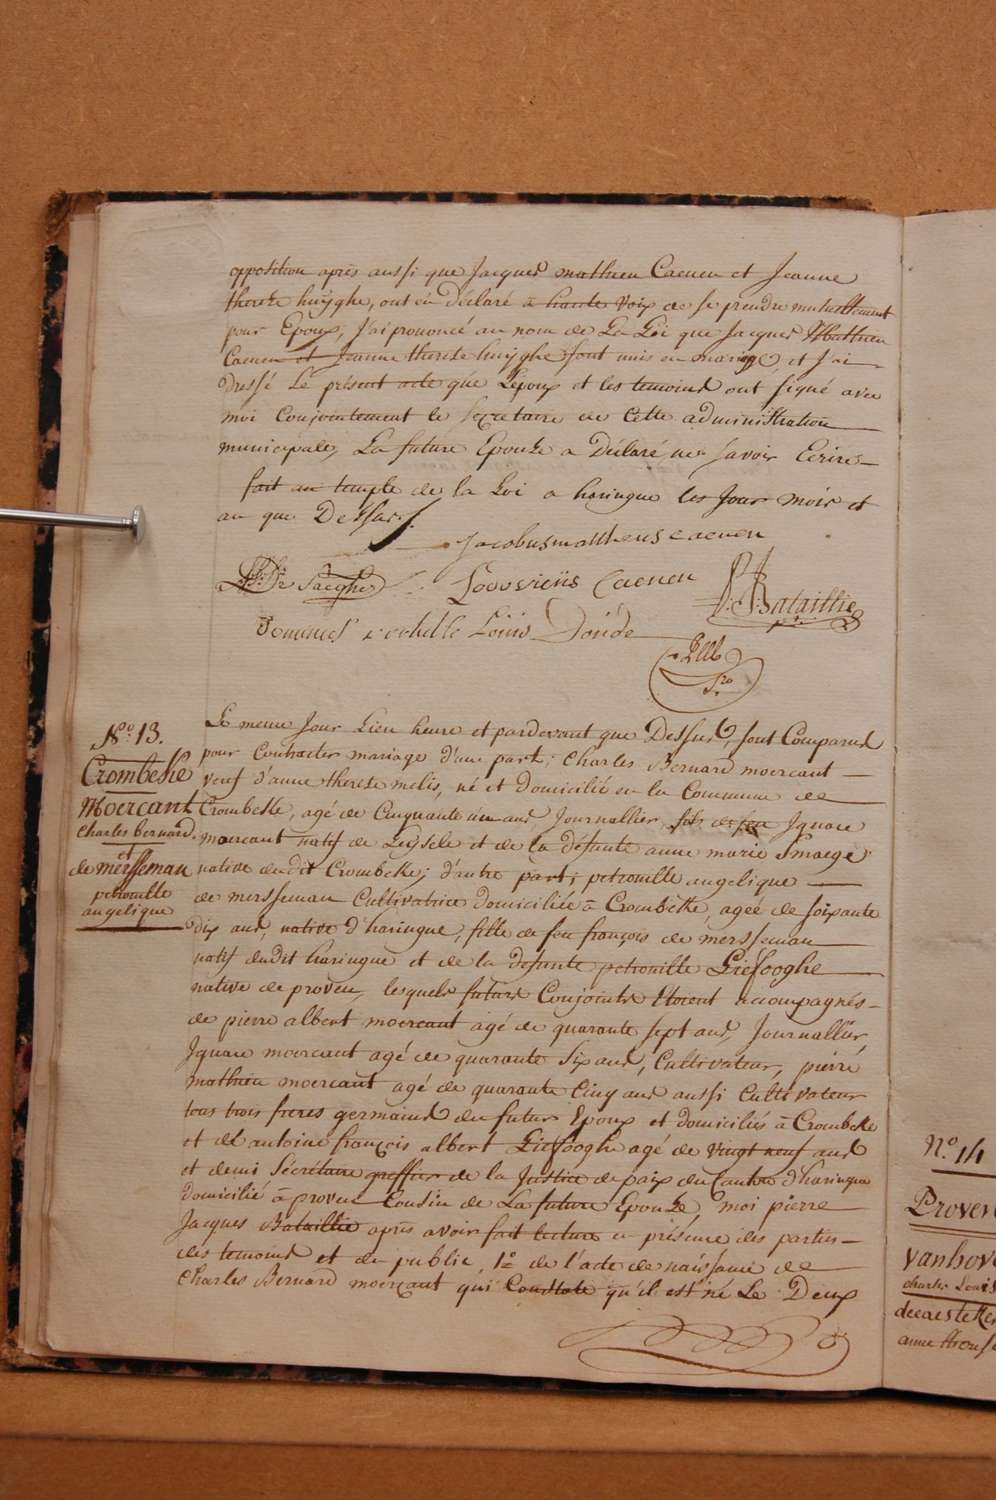 opposition après aussi que Jacques mathieu Caenen et Jeanne
thereze huÿghe, ont eu Déclaré a haute voix de se prendre mutuellement
pour Epoux, J'ai prononcé au nom de La Loi que Jacques Mathieu
Caenen et Jeanne thereze huÿghe sont unis en mariage et J'ai
dressé Le présent acte que L'époux et les temoins ont signé avec
moi Conjointement le secretaire de Cette administration
municipale, La future Epouze a Déclaré ne savoir Ecrire
fait au temple de la Loi a haringue les Jour mois et
an que Dessus.
Jacobus mattheus caenen
De Saeghe Lodovicus Caenen P: J: Bataillie
Louis Donde
No. 13.
Crombeke
Moercant
charles bernard.
et
de mersseman
petronille
angelique
Le meme Jour Lieu heure et pardevant que Dessus, sont Comparus
pour Contracter mariage d'une part; Charles Bernard moercant
veuf d'anne thereze melis, né et Domicilié en la Commune de
Crombekke, agé de Cinquante un ans Journallier, fils de feu Ignace
moercant natif de Leÿsele et de la défunte anne marie Smaege
native dudit Crombekke; d'autre part; petronille angelique
de mersseman Cultivatrice domiciliée à Crombekke, agée de soixante
dix ans, native d'haringue, fille de feu françois de mersseman
natif dudit haringue et de la defunte petronille Liefooghe
native de proven, lesquels futurs Conjoints Etoient accompagnés
de pierre albert moercant agé de quarante sept ans, Journallier,
Ignace moercant agé de quarante Six ans, Cultivateur, pierre
mathieu moercant agé de quarante Cinq ans aussi Cultivateur
tous trois freres germains du futur Epoux et domiciliés à Crombekke
et de antoine françois albert Liefooghe agé de vingt neuf ans
et demi Sécretaire greffier de la Justice de paix du Canton d'haringue
domicilié à proven Cousin de La future Epouze, moi pierre
Jacques Bataillie après avoir fait lecture en présence des parties
des temoins et du public, 1o de l'acte de naissance de
Charles Bernard moercant qui Constate qu'il est né Le Deux
No. 14
Proven
vanhov
charles Louis